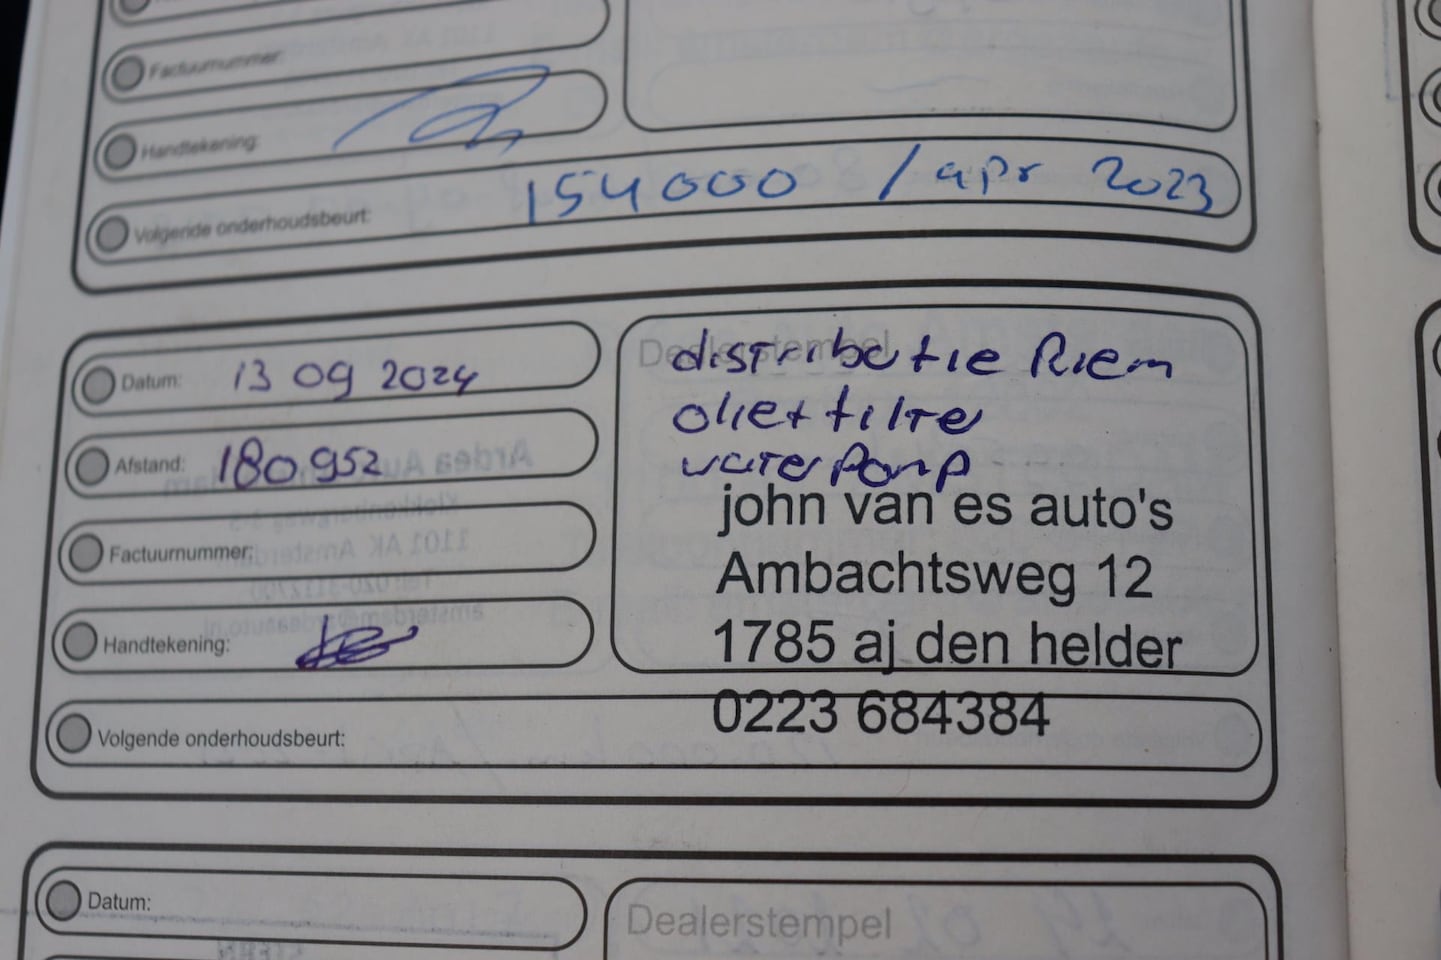 Factuurnummer:
Handtekening:
Volgende onderhoudsbeurt: 154000 / apr 2023
Datum: 13 09 2024
Dealerstempel
distributie Riem
Afstand: 180952
oliet filter
water Pomp
john van es auto's
Ambachtsweg 12
1785 aj den helder
0223 684384
Factuurnummer:
Handtekening:
Volgende onderhoudsbeurt:
Datum:
Dealerstempel